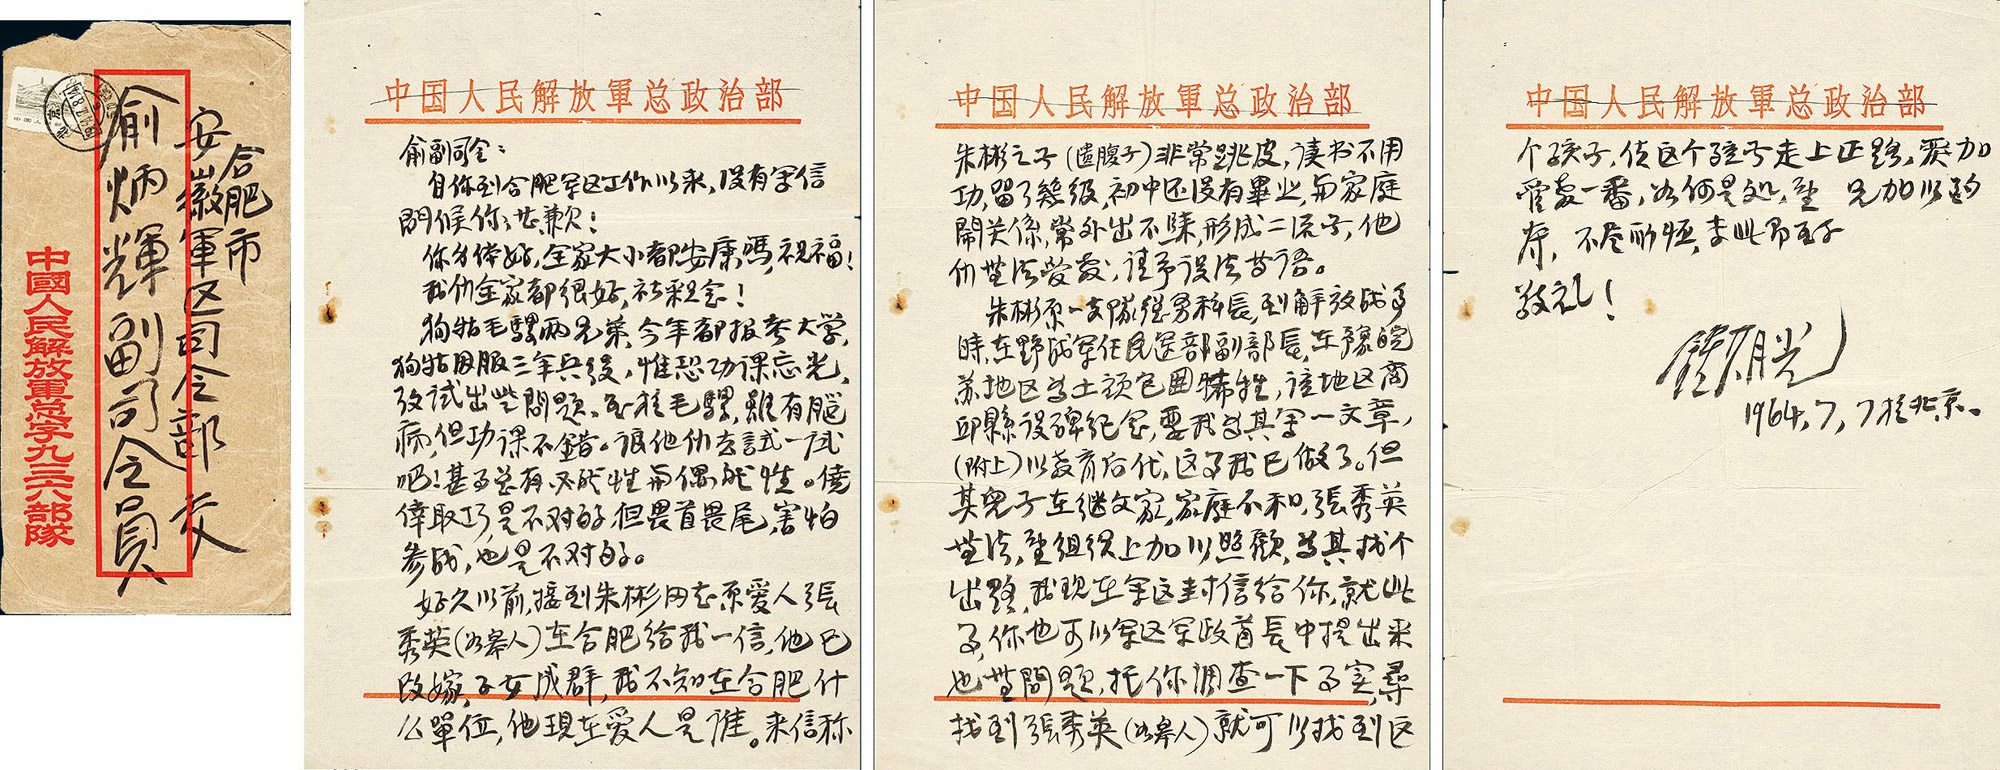 合肥市
安徽軍区司令部 交
俞炳輝副司令員
中國人民解放軍总字九三六部隊
北京
中国人民解放軍总政治部
俞副司令：
自你到合肥军区工作以来，没有写信
問候你，甚歉！
你身体好，全家大小都安康嗎，祝福！
我们全家都很好，祈釈念！
狗牯毛騾兩兄弟，今年都报考大学，
狗牯因服三年兵役，惟恐功课忘光，
攷試出些問題。至於毛騾，雖有腦
病，但功课不錯。讓他们去試一試
吧！甚事总有必然性與偶然性。僥
倖取巧是不对的，但畏首畏尾，害怕
参战，也是不对的。
好久以前，接到朱彬同志原爱人張
秀英（如皋人）在合肥给我一信，他已
改嫁，子女成群，我不知在合肥什
么單位，他現在爱人是谁。来信称
中国人民解放軍总政治部
朱彬之子（遺腹子）非常跳皮，读书不用
功，留了幾级，初中还没有畢业，与家庭
鬧关係，常外出不归，形成二流子，他
们無法管教，请予设法等语。
朱彬原一支隊组织科長，到解放战争
時，在野战军任民运部副部長，在豫皖
苏地区为土顽包围犧牲，该地区商
邱縣设碑纪念，要我为其写一文章，
（附上）以教育后代，这事我已做了。但
其兒子在继父家，家庭不和，張秀英
無法，望组织上加以照顧，为其找个
出路，我现在写这封信给你，就此
事，你也可以军区军政首長中提出来
也無問題，托你调查一下事实，尋
找到張秀英（如皋人）就可以找到这
中国人民解放軍总政治部
个孩子，使这个孩子走上正路，要加
管教一番，如何是处，望 兄加以酌
奪，不尽所恒，专此即致
敬礼！
鍾期光
1964，7，7於北京。